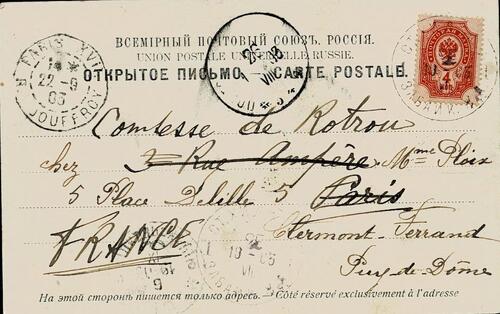 ВСЕМІРНЫЙ ПОЧТОВЫЙ СОЮЗЪ. РОССІЯ.
UNION POSTALE UNIVERSELLE RUSSIE.
ОТКРЫТОЕ ПИСЬМО CARTE POSTALE
PARIS XVII
22-9
03
JOUFFROY
Comtesse de Rotrou
chez 3 Rue Ampère Mme Ploix
5 Place Delille 5 Paris
FRANCE Clermont-Ferrand
Puy-de-Dôme
На этой сторонѣ пишется только адресъ. — Côté réservé exclusivement à l'adresse